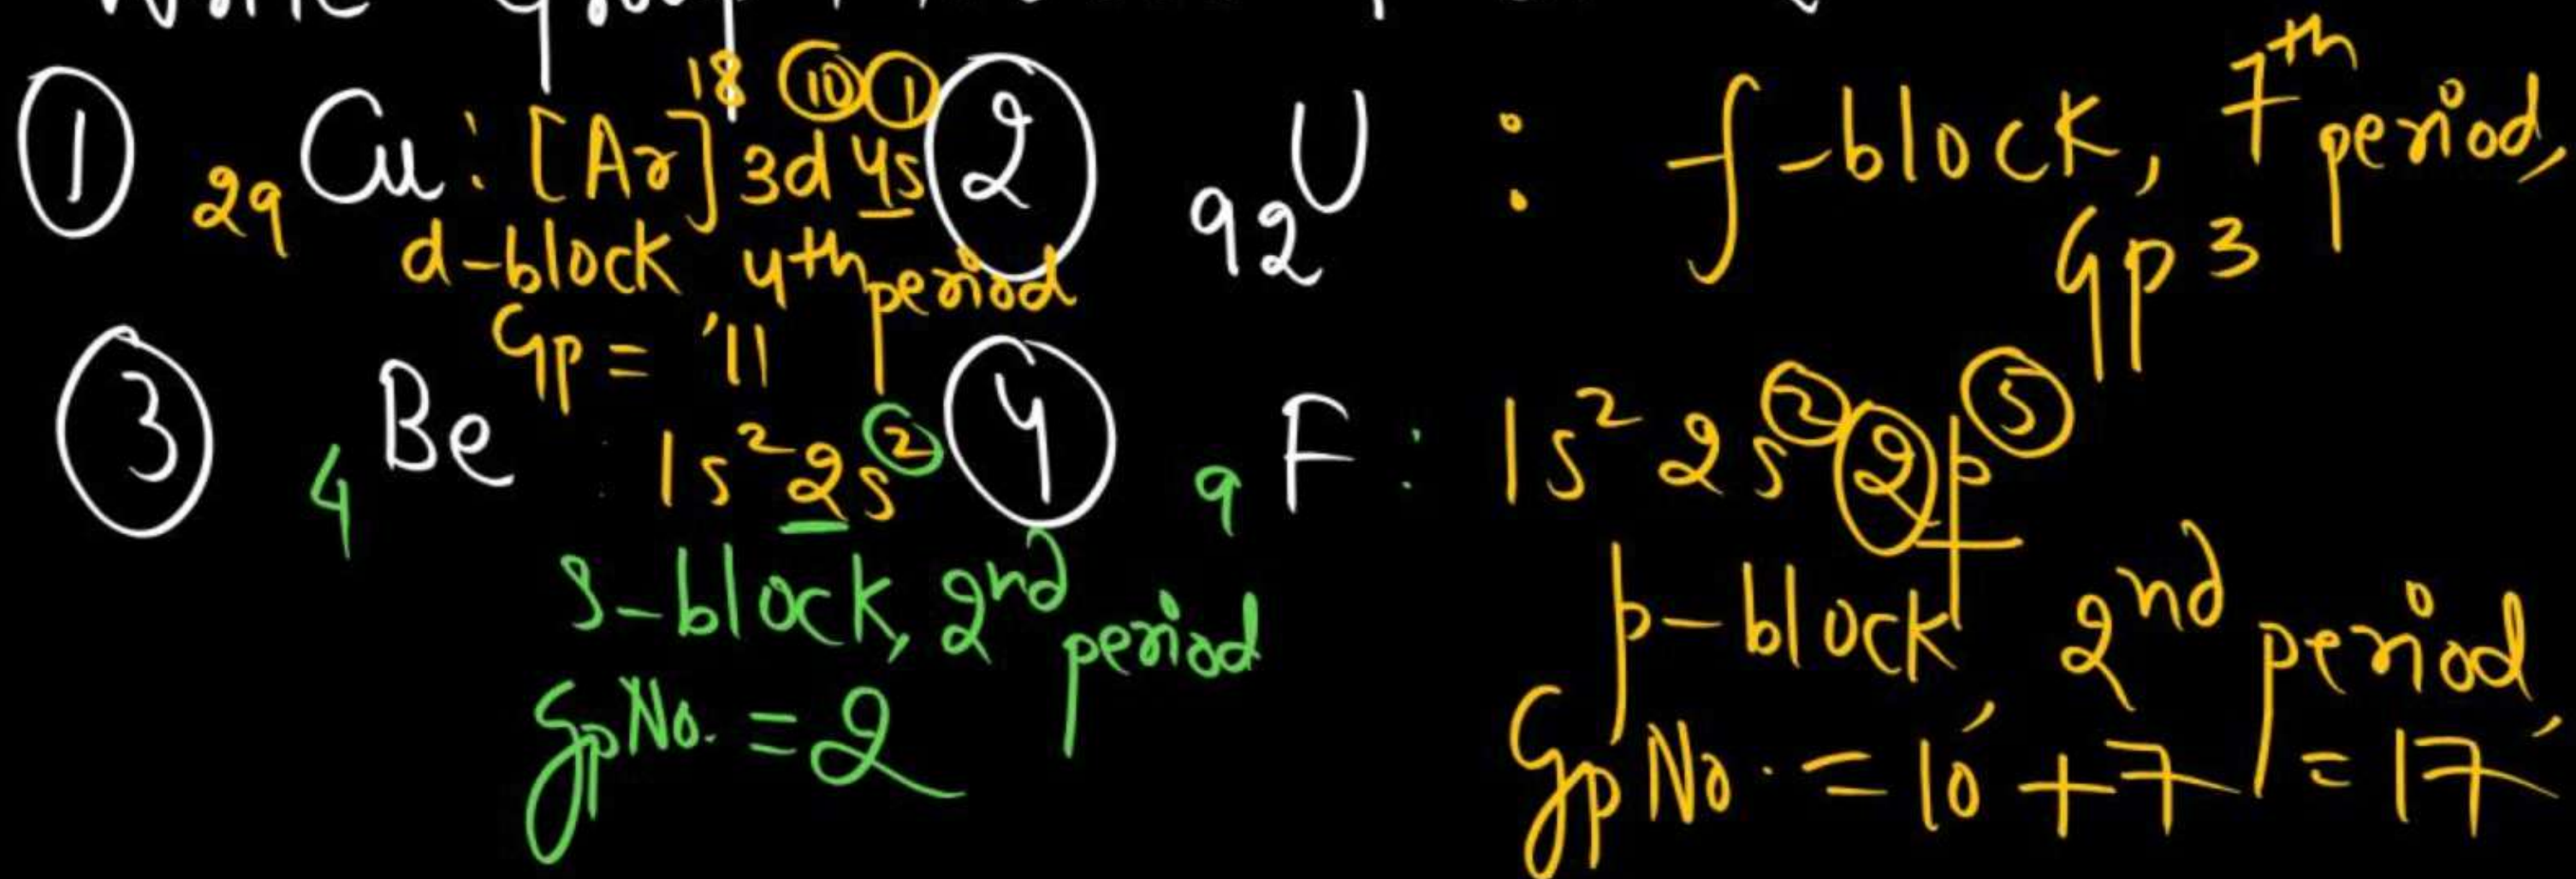 ① ₂₉Cu : [Ar]¹⁸ 3d¹⁰ 4s¹
d-block 4th period
Gp = 11
② ₉₂U : f-block, 7th period,
Gp 3
③ ₄Be : 1s² 2s²
s-block, 2nd period
Gp No. = 2
④ ₉F : 1s² 2s² 2p⁵
p-block, 2nd period,
Gp No. = 10 + 7 = 17